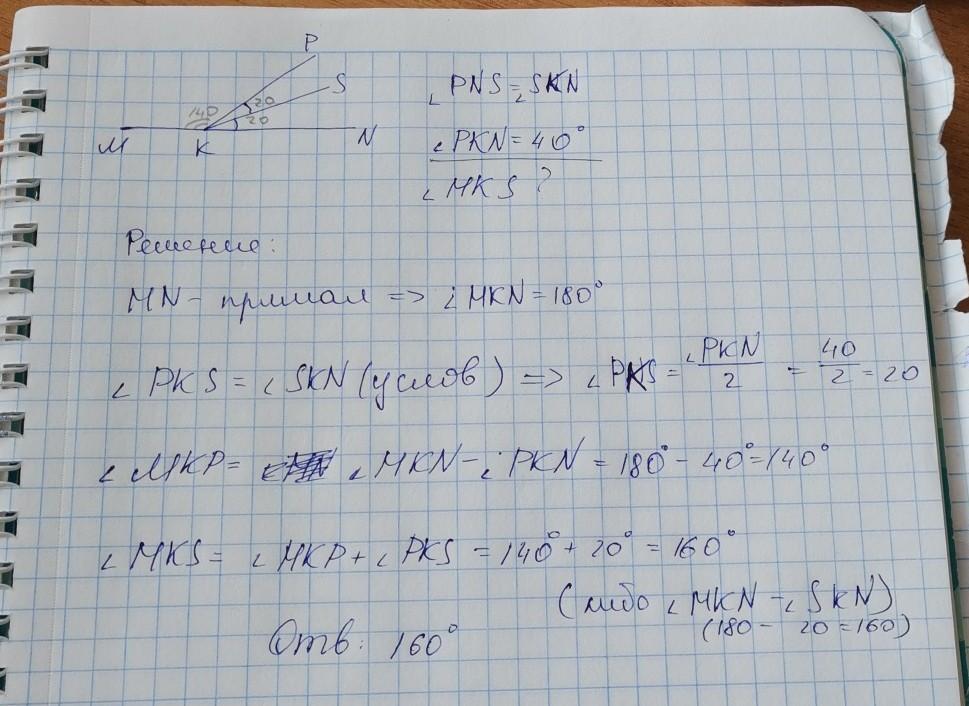 P
S
140
20
20
M
K
N
∠PNS = ∠SKN
∠PKN = 40°
∠MKS ?
Решение:
MN - прямая => ∠MKN = 180°
∠PKS = ∠SKN (услов) => ∠PKS = ∠PKN/2 = 40/2 = 20
∠MKP = ∠MKN - ∠PKN = 180° - 40° = 140°
∠MKS = ∠MKP + ∠PKS = 140° + 20° = 160°
(либо ∠MKN - ∠SKN)
(180 - 20 = 160)
Отв: 160°